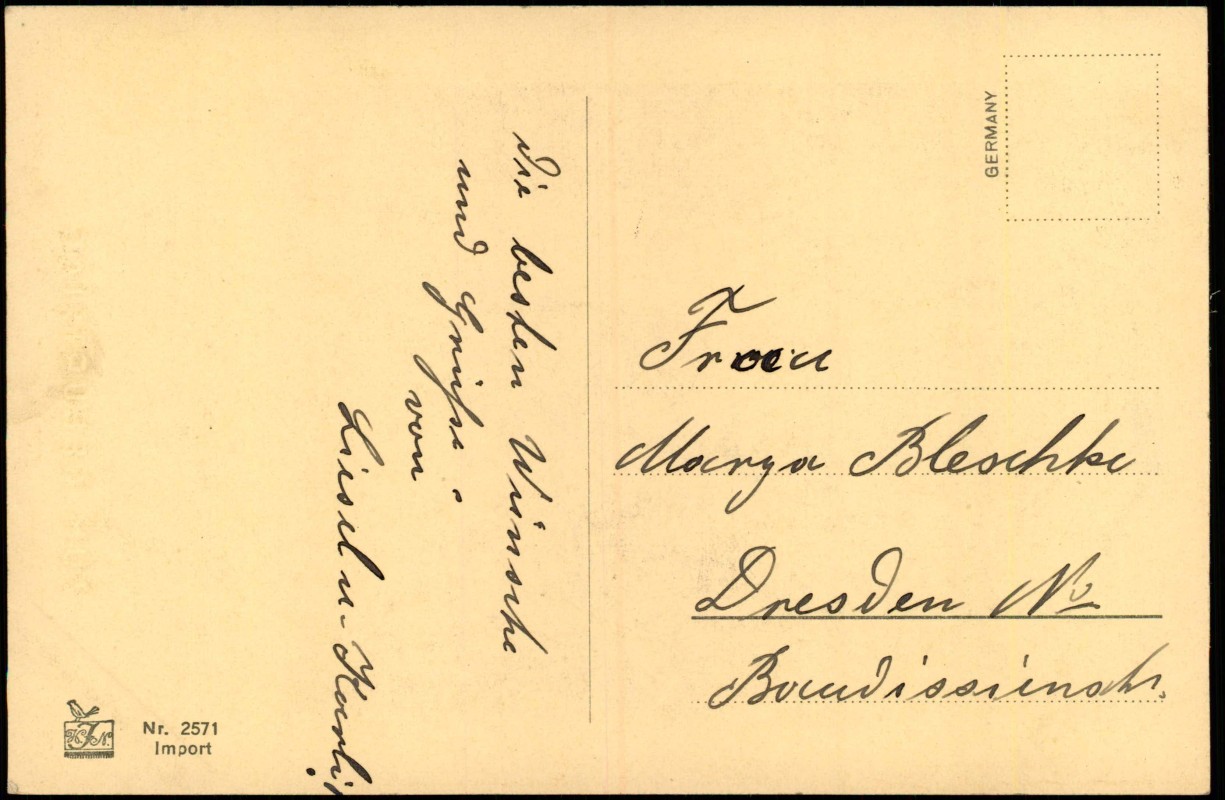 die besten Wünsche
und Grüße
von
Liesel u. Karli
GERMANY
Frau
Marga Bleschke
Dresden No
Baudissinstr.
HJN
Nr. 2571
Import